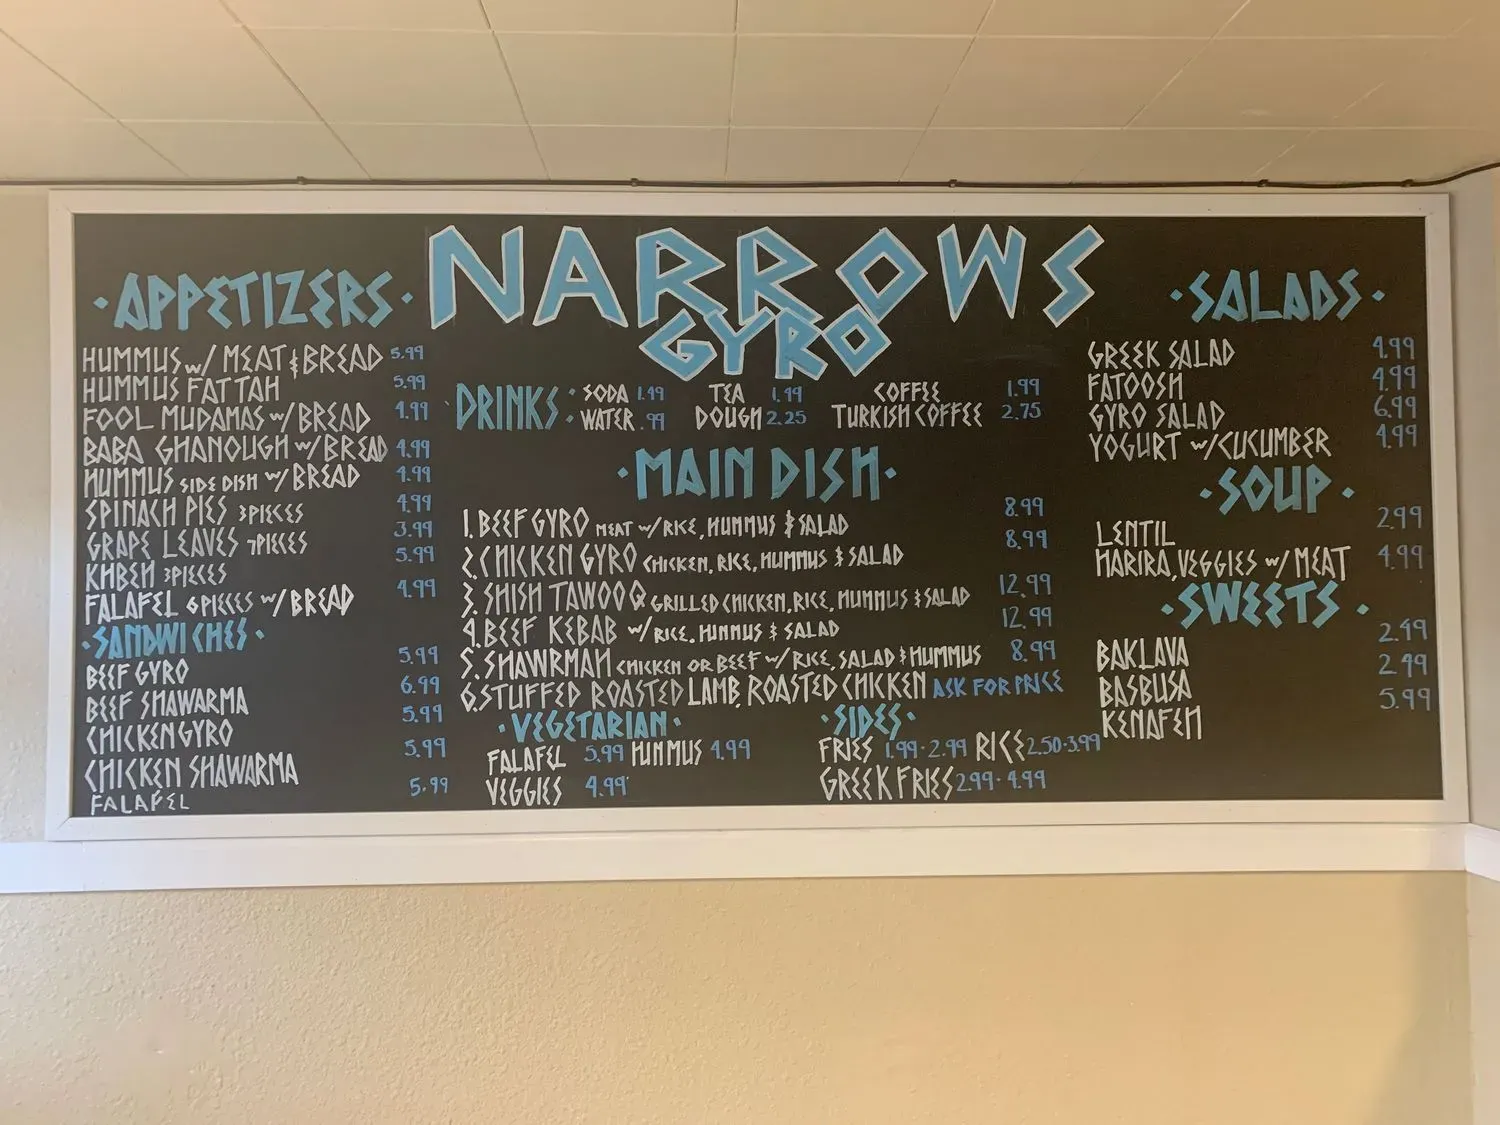 NARROWS
GYRO
·APPETIZERS·
HUMMUS w/ MEAT & BREAD 5.99
HUMMUS FATTAH 5.99
FOOL MUDAMAS w/BREAD 4.99
BABA GHANOUGH w/BREAD 4.99
HUMMUS SIDE DISH w/BREAD 4.99
SPINACH PIES 3PIECES 4.99
GRAPE LEAVES 7PIECES 3.99
KHBEH 3PIECES 5.99
FALAFEL 6PIECES w/BREAD 4.99
·SANDWICHES·
BEEF GYRO 5.99
BEEF SHAWARMA 6.99
CHICKEN GYRO 5.99
CHICKEN SHAWARMA 5.99
FALAFEL 5.99
·DRINKS: SODA 1.49 TEA 1.49 COFFEE 1.99
WATER .99 DOUGH 2.25 TURKISH COFFEE 2.75
·MAIN DISH·
1. BEEF GYRO MEAT w/RICE, HUMMUS & SALAD 8.99
2. CHICKEN GYRO CHICKEN, RICE, HUMMUS & SALAD 8.99
3. SHISH TAWOOQ GRILLED CHICKEN, RICE, HUMMUS & SALAD 12.99
4. BEEF KEBAB w/RICE, HUMMUS & SALAD 12.99
5. SHAWRMAH CHICKEN OR BEEF w/RICE, SALAD & HUMMUS 8.99
6. STUFFED ROASTED LAMB, ROASTED CHICKEN ASK FOR PRICE
·VEGETARIAN·
FALAFEL 5.99 HUMMUS 4.99
VEGGIES 4.99
·SIDES·
FRIES 1.99-2.99 RICE 2.50-3.99
GREEK FRIES 2.99-4.99
·SALADS·
GREEK SALAD 4.99
FATOOSH 4.99
GYRO SALAD 6.99
YOGURT w/CUCUMBER 4.99
·SOUP·
LENTIL 2.99
HARIRA, VEGGIES w/ MEAT 4.99
·SWEETS·
BAKLAVA 2.49
BASBUSA 2.49
KENAFEH 5.99